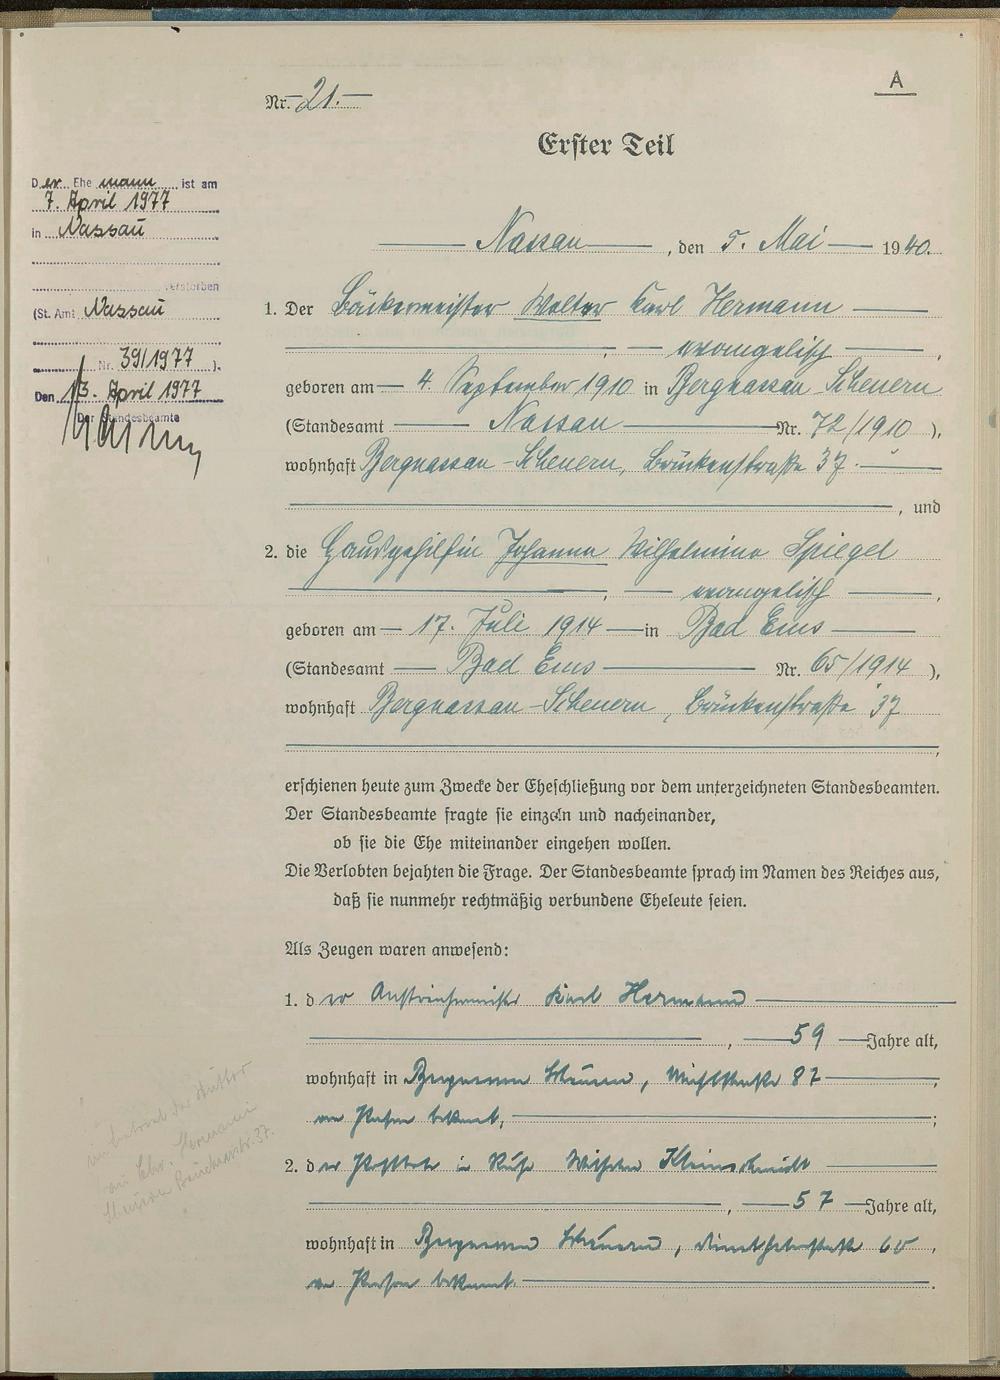 A
Nr. 21.
Erster Teil
Der Ehemann ist am
7. April 1977
in Nassau
verstorben
(St. Amt Nassau
Nr. 39/1977 ).
Den 13. April 1977
Der Standesbeamte
Nassau, den 5. Mai 1940.
1. Der Bäckermeister Walter Karl Hermann
, evangelisch,
geboren am 4. September 1910 in Bergnassau-Scheuern
(Standesamt Nassau Nr. 72/1910 ),
wohnhaft Bergnassau-Scheuern, Brückenstraße 37.
, und
2. die Hausgehilfin Johanna Wilhelmine Spiegel
, evangelisch,
geboren am 17. Juli 1914 in Bad Ems
(Standesamt Bad Ems Nr. 65/1914 ),
wohnhaft Bergnassau-Scheuern, Brückenstraße 37
,
erschienen heute zum Zwecke der Eheschließung vor dem unterzeichneten Standesbeamten.
Der Standesbeamte fragte sie einzeln und nacheinander,
ob sie die Ehe miteinander eingehen wollen.
Die Verlobten bejahten die Frage. Der Standesbeamte sprach im Namen des Reiches aus,
daß sie nunmehr rechtmäßig verbundene Eheleute seien.
Als Zeugen waren anwesend:
1. der Anstreichermeister Karl Hermann
, 59 Jahre alt,
wohnhaft in Bergnassau Scheuern, 87,
von Person bekannt, ;
2. der Wilhelm Kleinschmidt
, 57 Jahre alt,
wohnhaft in Bergnassau Scheuern, 60,
von Person bekannt.
der Mutter
Hermann
Scheuern Brückenstr. 37.